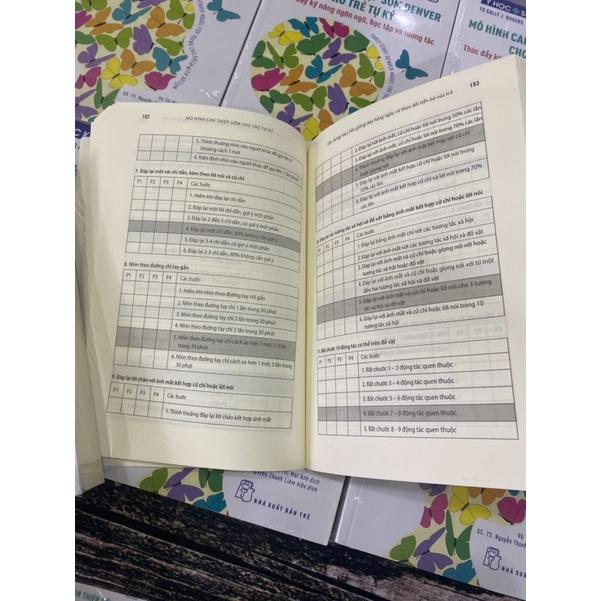 SỚM DENVER
CHO TRẺ TỰ KỶ
đẩy kỹ năng ngôn ngữ, học tập và tương tác
Y HỌC
TS SALLY J. ROGERS
MÔ HÌNH CAN
CHO
Thúc đẩy kỹ
GS. TS. Nguyễn
192
MÔ HÌNH CAN THIỆP SỚM CHO TRẺ TỰ KỶ
5. Thỉnh thoảng nhìn vào người khác để gọi tên ở
khoảng cách 3 mét
7. Đáp lại một vài chỉ dẫn, kèm theo lời nói và cử chỉ
P1 P2 P3 P4 Các bước
1. Hiếm khi đáp lại chỉ dẫn
2. Đáp lại một lời chỉ dẫn, gợi ý một phần
3. Đáp lại 2 đến 3 chỉ dẫn, có gợi ý một phần
4. Đáp lại một chỉ dẫn, 80% không cần gợi ý
5. Đáp lại 3-4 chỉ dẫn, có gợi ý một phần
6. Đáp lại 2-3 chỉ dẫn, 80% không cần gợi ý
8. Nhìn theo đường chỉ tay gần.
P1 P2 P3 P4 Các bước
1. Hiếm khi nhìn theo đường chỉ tay gần
2. Nhìn theo đường tay chỉ 1 lần trong 30 phút
3. Nhìn theo đường tay chỉ 2 lần trong 30 phút
4. Nhìn theo đường tay chỉ 3 lần trong 30 phút
5. Nhìn theo đường tay chỉ cách xa hơn 1 mét, 1-2 lần
trong 30 phút
6. Nhìn theo đường tay chỉ cách xa hơn 1 mét, 3 lần trong
30 phút
9. Đáp lại lời chào với ánh mắt kết hợp cử chỉ hoặc lời nói
P1 P2 P3 P4 Các bước
1. Thỉnh thoảng đáp lại lời chào kết hợp ánh mắt
193
2. Đáp lại với ánh mắt, cử chỉ hoặc lời nói trong 50% các lần
3. Đáp lại với ánh mắt, cử chỉ hoặc lời nói trong 70% các lần
50% các lần
các lần
10. Đáp lại các tương tác xã hội và đồ vật bằng ánh mắt, cử chỉ hoặc lời nói
P1 P2 P3 P4 Các bước
1. Đáp lại bằng ánh mắt với các tương tác xã hội
2. Đáp lại với ánh mắt với các tương tác xã hội và đồ vật
3. Đáp lại với ánh mắt và cử chỉ hoặc giọng nói với hoặc
tương tác xã hội hoặc đồ vật
4. Đáp lại với ánh mắt và cử chỉ hoặc giọng nói với từ một
đến hai tương tác xã hội và đồ vật
5. Đáp lại với ánh mắt và cử chỉ hoặc lời nói cho 3 tương
tác xã hội và đồ vật
6. Đáp lại với ánh mắt và cử chỉ hoặc lời nói trong 10
tương tác xã hội
11. Bắt chước 10 động tác cơ thể trên đồ vật
P1 P2 P3 P4 Các bước
1. Bắt chước 1 – 2 động tác quen thuộc
2. Bắt chước 3 – 4 động tác quen thuộc
3. Bắt chước 5 – 6 động tác quen thuộc
4. Bắt chước 7 – 8 động tác quen thuộc
5. Bắt chước 8 - 9 động tác quen thuộc
Mai Anh dịch
Nguyễn Thanh Liêm hiệu đính
NHÀ XUẤT BẢN TRẺ
GS. TS. Nguyễn Thanh
NHÀ XUẤT